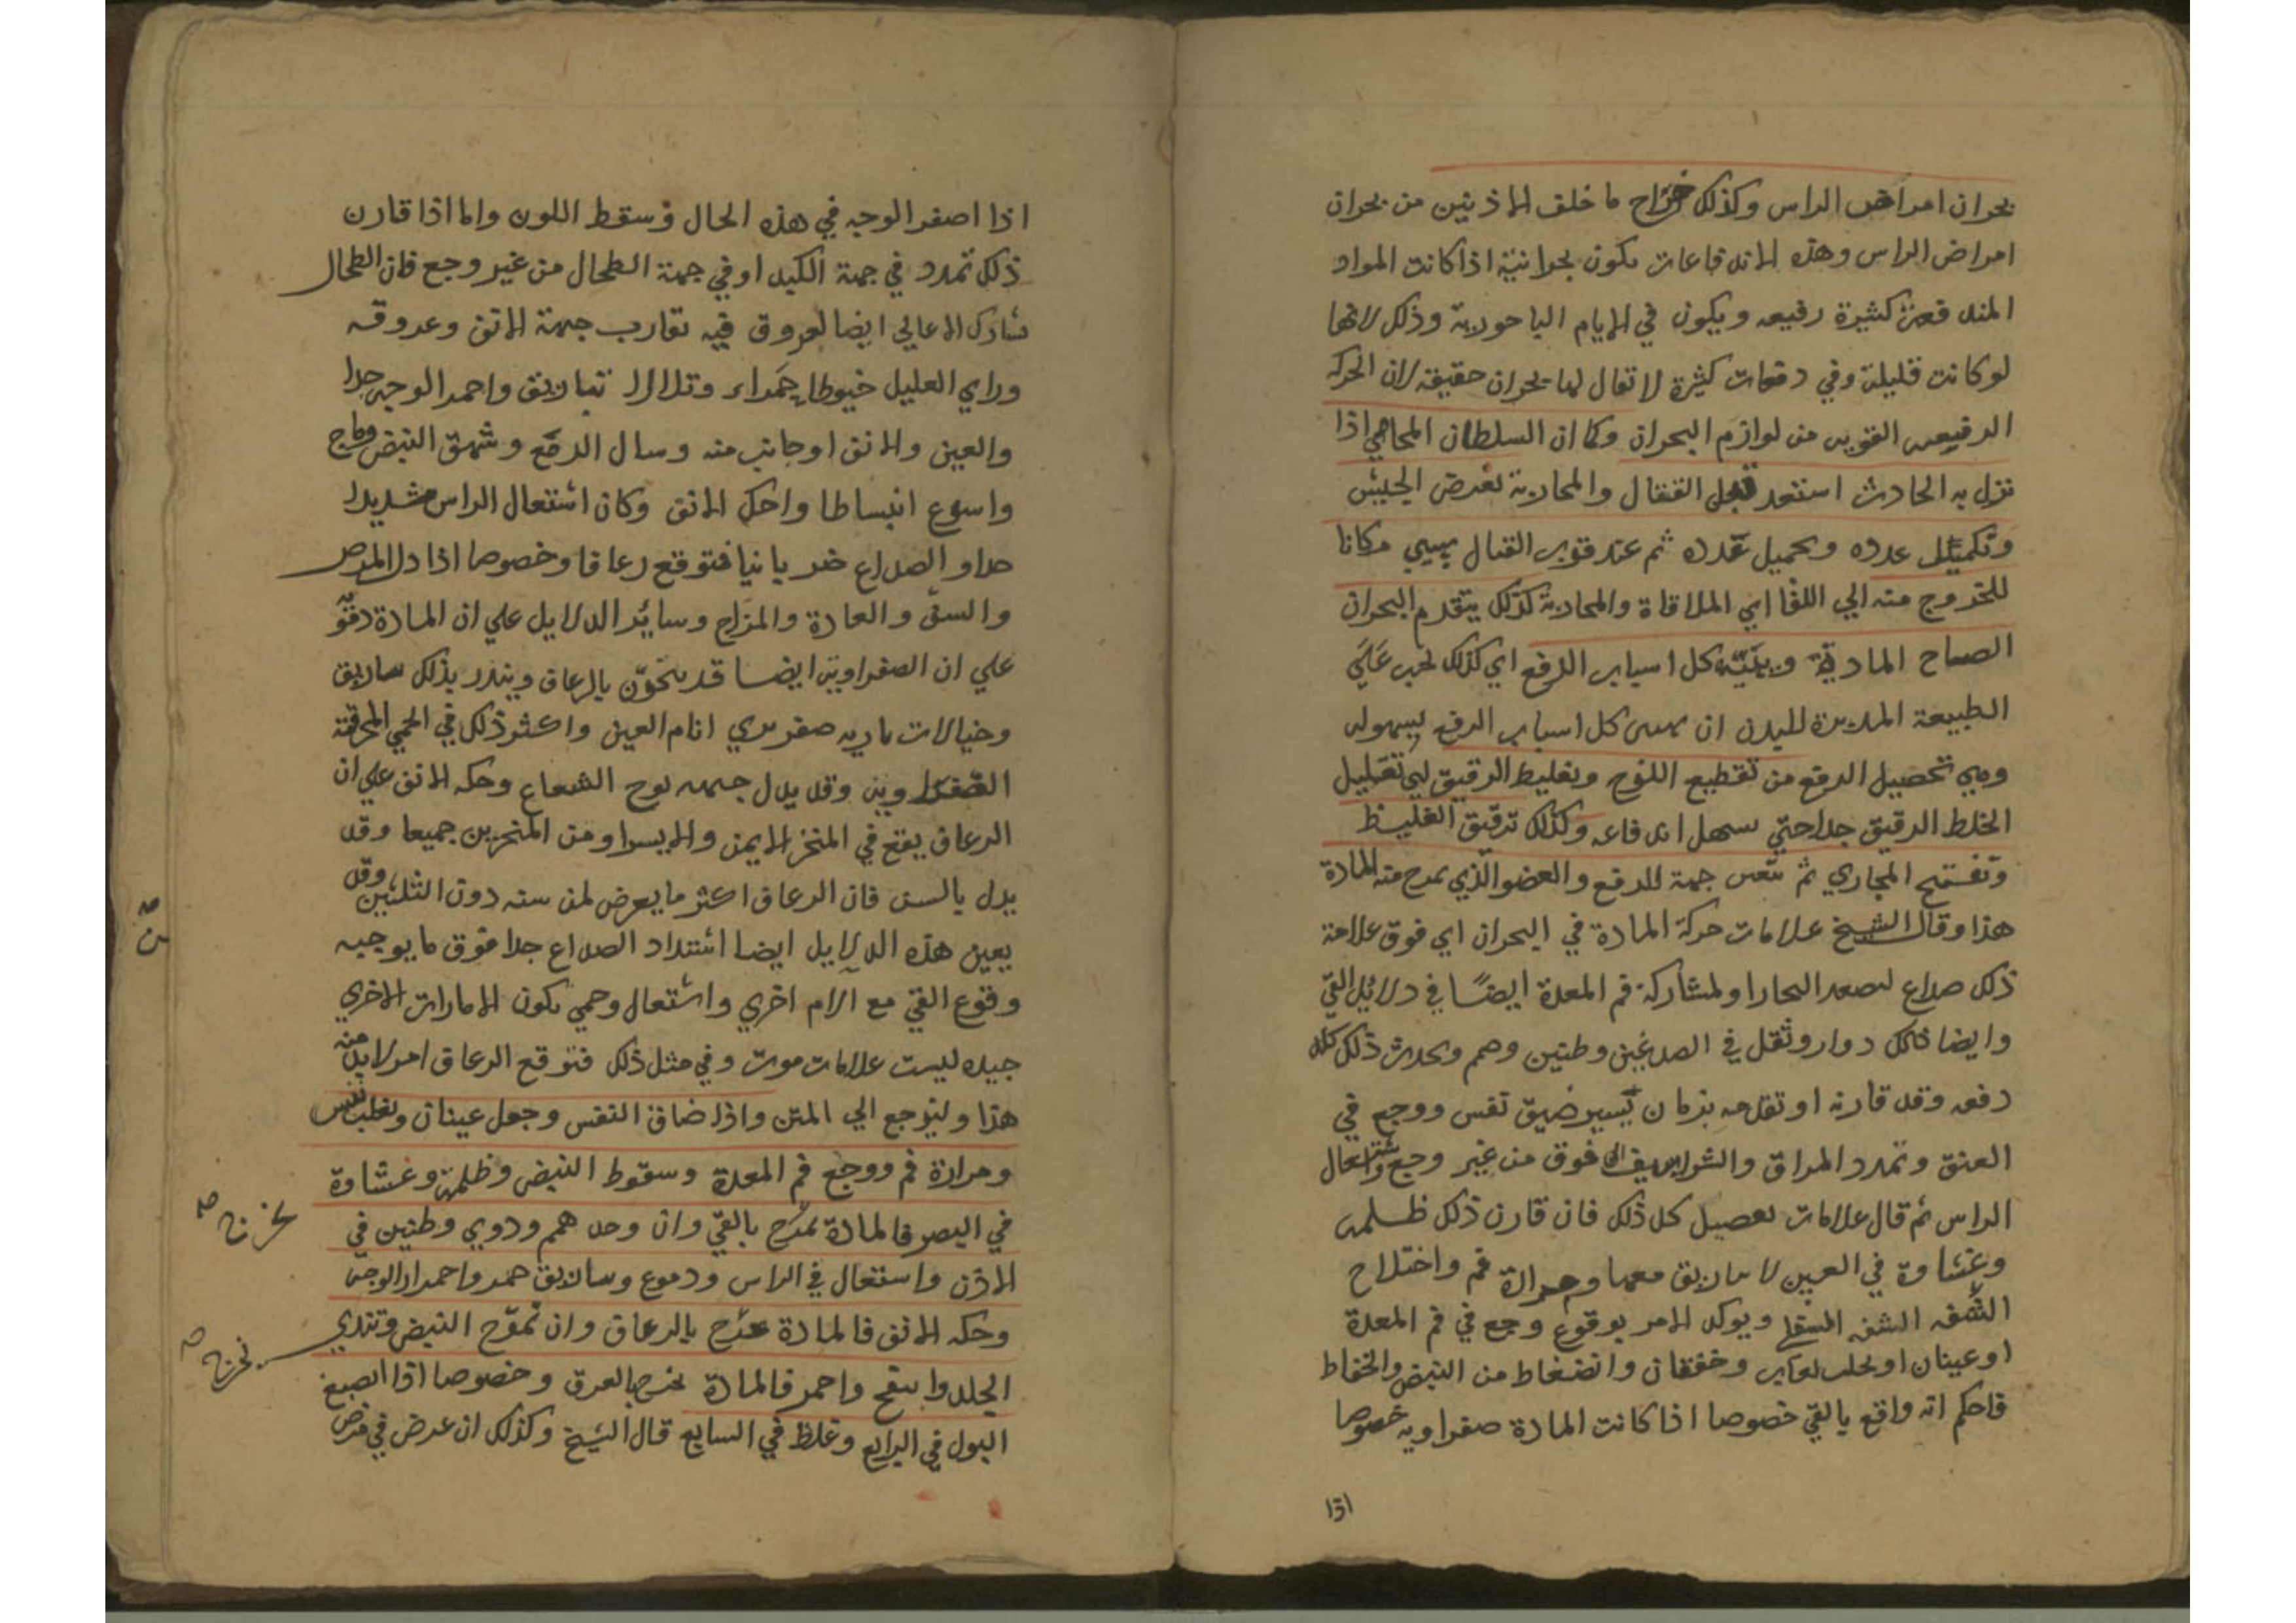 بحران امراض الراس وكذلك خراج ما خلف الاذنين من بحران
امراض الراس وهذه الاندفاعات تكون بحرانية اذا كانت المواد
المندفعة كثيرة دفيعه ويكون في الايام الباحورية وذلك لانها
لو كانت قليلة وفي دفعات كثيرة لا تقال لها بحران حقيقة لان الحركه
الدفيعه القويه من لوازم البحران وكما ان السلطان المحامي اذا
نزل به الحادث استعد قبل القتال والمحاربة بعرض الجيش
وتكميل عدده وتحميل عُدده ثم عند قوب القتال يهيي مكانا
للخروج منه الي اللقا اي الملاقاة والمحاربة كذلك يتقدم البحران
انضاج المادة وتهيئة كل اسباب الدفع اي كذلك يجب علي
الطبيعة المدبرة للبدن ان يهيى كل اسباب الدفع بسهوله
وهي تحصيل الدفع من تقطيع اللزج وتغليظ الرقيق اي تقليل
الخلط الرقيق جدا حتي سهل اندفاعه وكذلك ترقيق الغليظ
وتفتيح المجاري ثم تتعين جهة للدفع والعضو الذي يخرج منه المادة
هذا وقال الشيخ علامات حركة المادة في البحران اي فوق علامة
ذلك صداع لتصعد البخار او لمشاركة فم المعدة ايضًا في دلائل القئ
وايضا فلكل دوار وثقل في الصدغين وطنين وصمم ويحدث ذلك كله
دفعه وقد قارنه او تقدمه بزمان يسير ضيق نفس ووجع في
العنق وتمدد المراق والشراسيف الي فوق من غير وجع واشتعال
الراس ثم قال علامات تفصيل كل ذلك فان قارن ذلك ظلمه
وغشاوة في العين لا تباريق معها ومرارة فم واختلاج
الشفه الشفه السفلي ويوكد الامر بوقوع وجع في فم المعدة
او غثيان او تحلب لعاب وخفقان وانضغاط من النبض وانخفاط
فاحكم انه واقع بالقئ خصوصا اذا كانت المادة صفراويه خصوصا
اذا
اذا اصفر الوجه في هذه الحال وسقط اللون واما اذا قارن
ذلك تمدد في جهة الكبد او في جهة الطحال من غير وجع فان الطحال
تشارك الاعالي ايضا لعروق فيه تقارب جهة الانف وعروقه
وراي العليل خيوطا حمراء وتلالا تباريق واحمر الوجه جدا
والعين والانف او جانب منه وسال الدمع وشهق النبض وماج
واسرع انبساطا واحك الانف وكان اشتعال الراس شديدا
جدا والصداع ضربانيا فتوقع رعافا وخصوصا اذا دل المرض
والسن والعادة والمزاج وسائر الدلايل علي ان المادة دمويه
علي ان الصفراوية ايضا قد تبحرن بالرعاف وينذر بذلك تباريق
وخيالات ناريه صفر تري امام العين واكثر ذلك في الحمي المحرقة
الصفراوية وقد يدل جهه لوح الشعاع وحكه الانف علي ان
الرعاف يقع في المنخر الايمن والايسر او من المنخرين جميعا وقد
يدل بالسن فان الرعاف اكثر ما يعرض لمن سنه دون الثلثين وقد
يعين هذه الدلايل ايضا اشتداد الصداع جدا فوق ما يوجبه
وقوع القئ مع الام اخري واشتعال وحمي تكون الامارات الاخري
جيده ليست علامات موت وفي مثل ذلك فتوقع الرعاف امر لا بد منه
هذا ولنرجع الي المتن واذا ضاق النفس وجعل غثيان وتقلب نفس
ومرارة فم ووجع فم المعدة وسقوط النبض وظلمة وغشاوة
في البصر فالمادة تخرج بالقئ وان وجد صمم ودوي وطنين في
الاذن واشتعال في الراس ودموع وتباريق حمر واحمرار الوجه
وحكه الانف فالمادة تخرج بالرعاف وان تموج النبض وتندي
الجلد وانتفخ واحمر فالمادة تخرج بالعرق وخصوصا اذا انصبغ
البول في الرابع وغلظ في السابع قال الشيخ وكذلك ان عرض في مرض
تخرج صح
تخرج صح